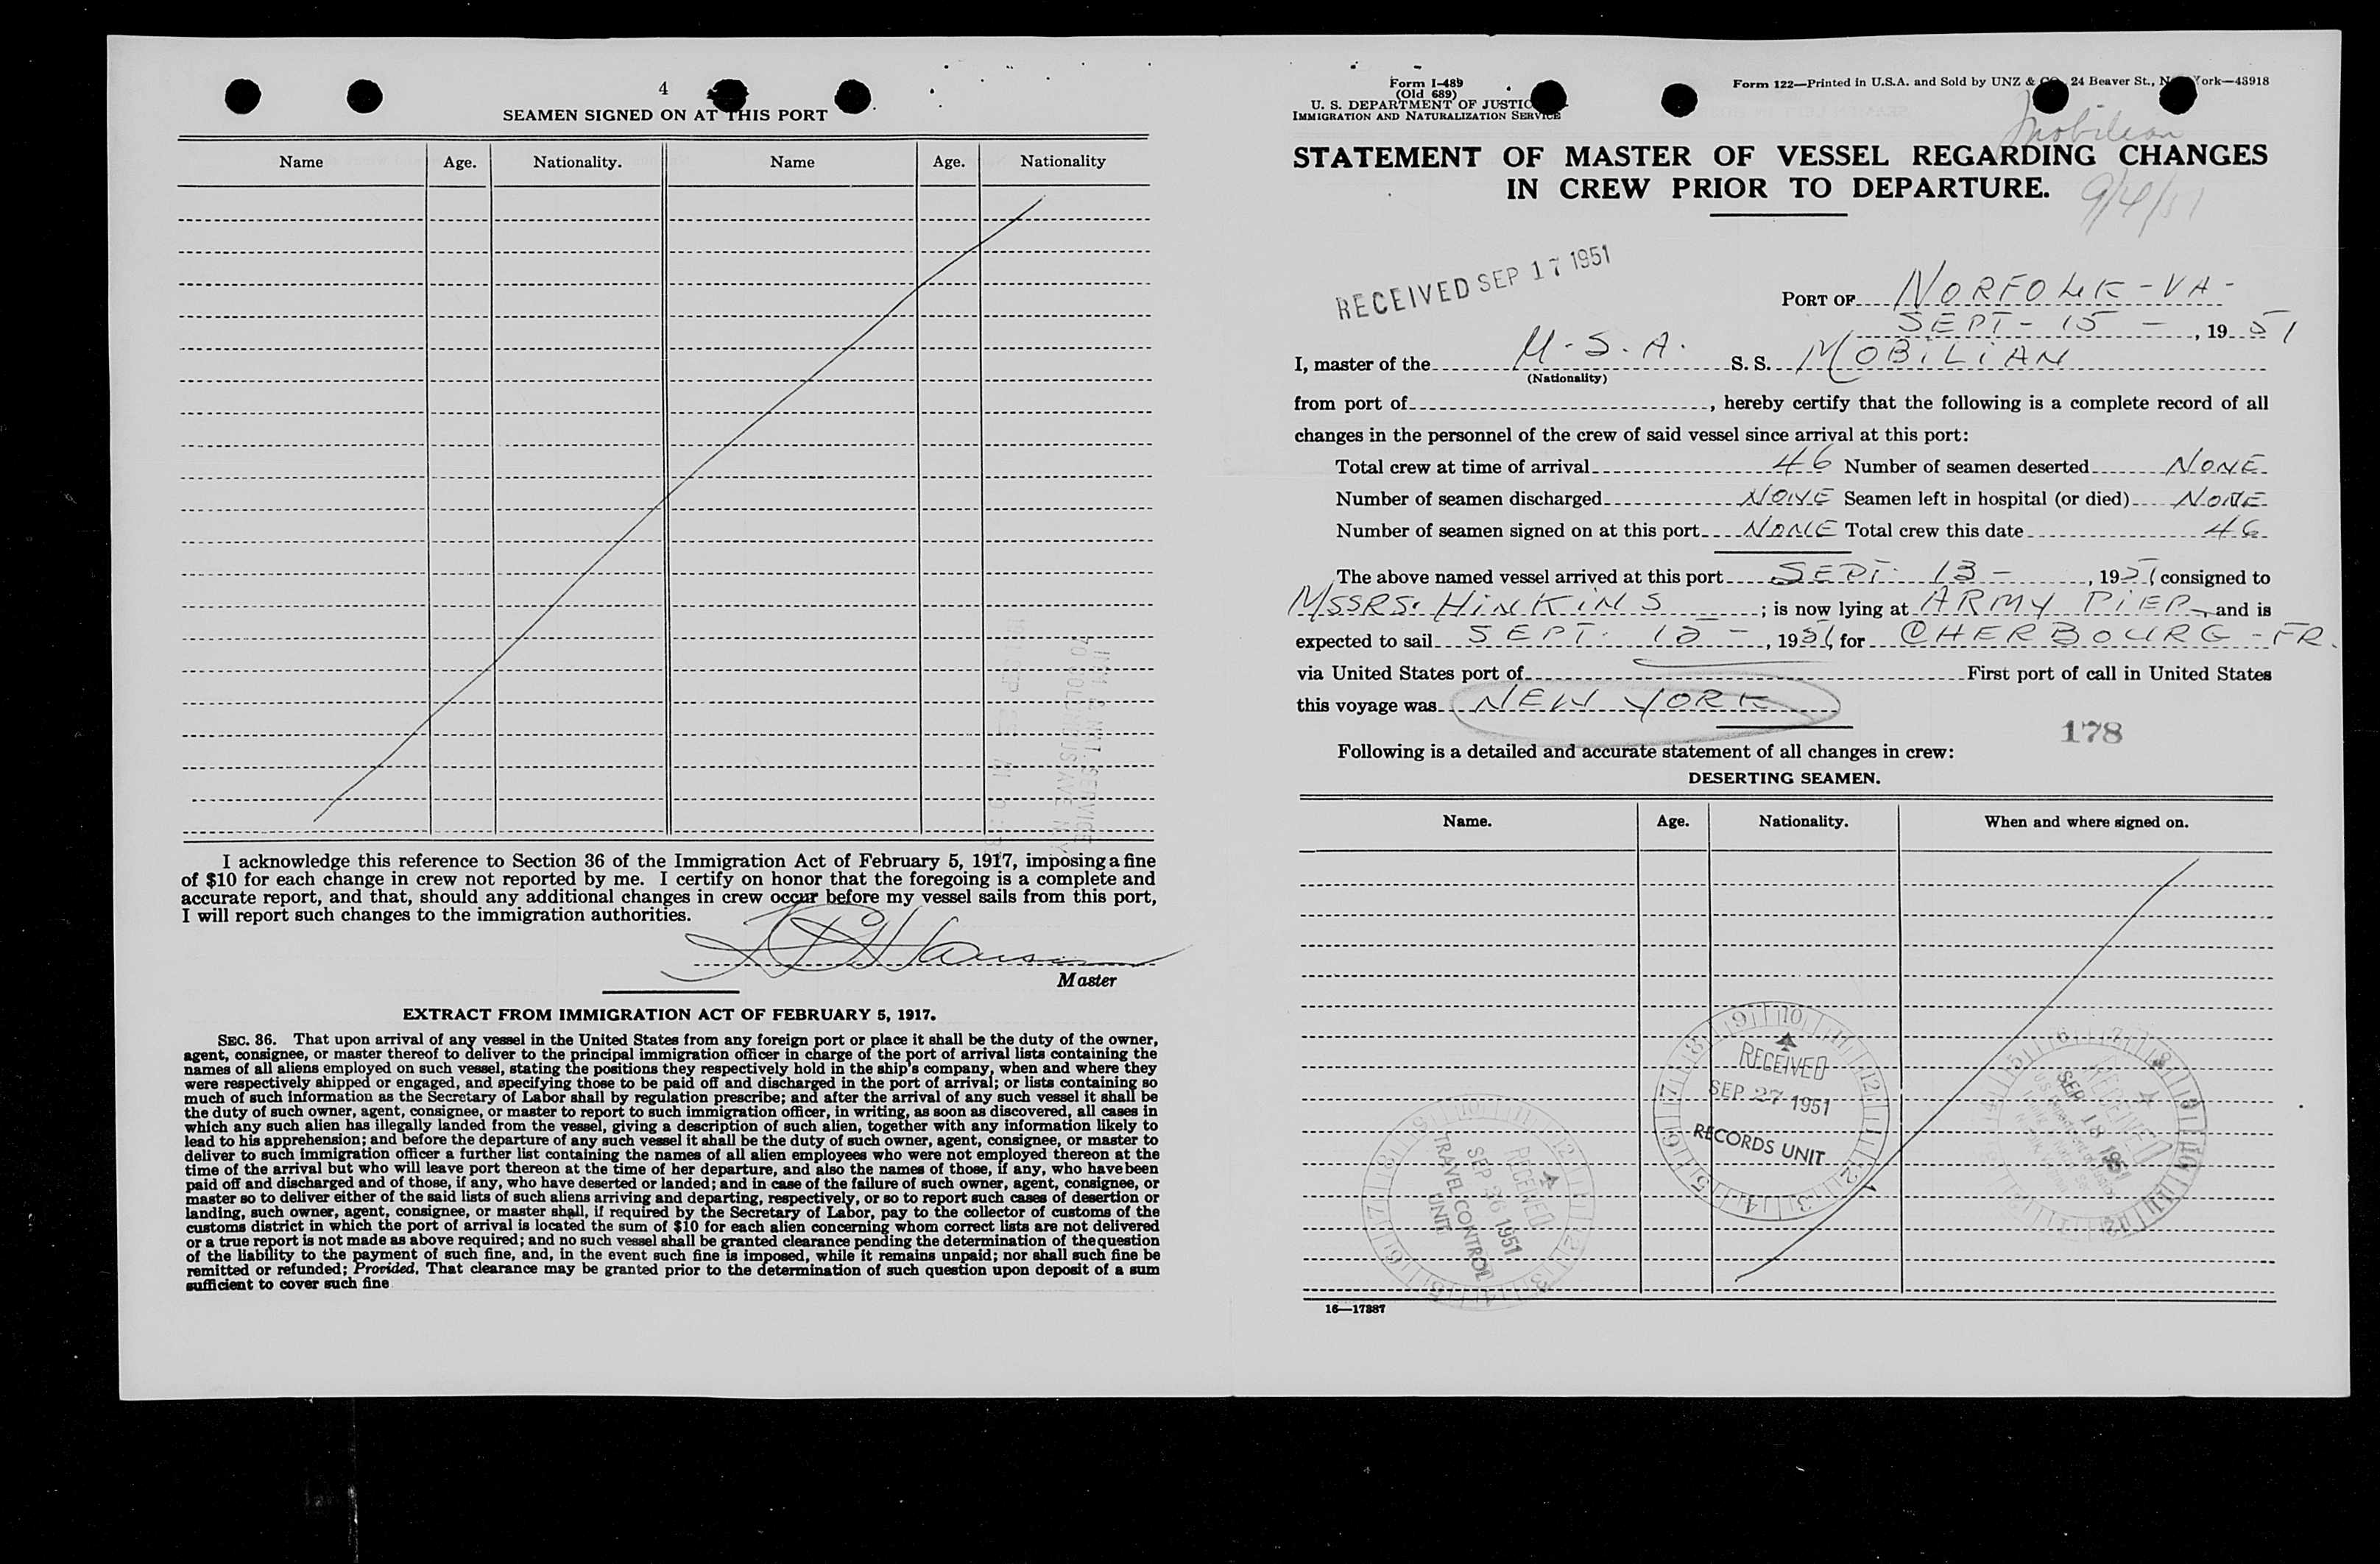 4
SEAMEN SIGNED ON AT THIS PORT
Name Age. Nationality. Name Age. Nationality
I acknowledge this reference to Section 36 of the Immigration Act of February 5, 1917, imposing a fine
of $10 for each change in crew not reported by me. I certify on honor that the foregoing is a complete and
accurate report, and that, should any additional changes in crew occur before my vessel sails from this port,
I will report such changes to the immigration authorities.
Master
EXTRACT FROM IMMIGRATION ACT OF FEBRUARY 5, 1917.
SEC. 36. That upon arrival of any vessel in the United States from any foreign port or place it shall be the duty of the owner,
agent, consignee, or master thereof to deliver to the principal immigration officer in charge of the port of arrival lists containing the
names of all aliens employed on such vessel, stating the positions they respectively hold in the ship's company, when and where they
were respectively shipped or engaged, and specifying those to be paid off and discharged in the port of arrival; or lists containing so
much of such information as the Secretary of Labor shall by regulation prescribe; and after the arrival of any such vessel it shall be
the duty of such owner, agent, consignee, or master to report to such immigration officer, in writing, as soon as discovered, all cases in
which any such alien has illegally landed from the vessel, giving a description of such alien, together with any information likely to
lead to his apprehension; and before the departure of any such vessel it shall be the duty of such owner, agent, consignee, or master to
deliver to such immigration officer a further list containing the names of all alien employees who were not employed thereon at the
time of the arrival but who will leave port thereon at the time of her departure, and also the names of those, if any, who have been
paid off and discharged and of those, if any, who have deserted or landed; and in case of the failure of such owner, agent, consignee, or
master so to deliver either of the said lists of such aliens arriving and departing, respectively, or so to report such cases of desertion or
landing, such owner, agent, consignee, or master shall, if required by the Secretary of Labor, pay to the collector of customs of the
customs district in which the port of arrival is located the sum of $10 for each alien concerning whom correct lists are not delivered
or a true report is not made as above required; and no such vessel shall be granted clearance pending the determination of the question
of the liability to the payment of such fine, and, in the event such fine is imposed, while it remains unpaid; nor shall such fine be
remitted or refunded; Provided, That clearance may be granted prior to the determination of such question upon deposit of a sum
sufficient to cover such fine
Form I-489
(Old 689)
U. S. DEPARTMENT OF JUSTIC
IMMIGRATION AND NATURALIZATION SERVICE
Form 122—Printed in U.S.A. and Sold by UNZ & CO. 24 Beaver St., N York—43918
Mobilian
STATEMENT OF MASTER OF VESSEL REGARDING CHANGES
IN CREW PRIOR TO DEPARTURE.
9/4/51
RECEIVED SEP 17 1951
PORT OF NORFOLK - VA -
SEPT - 15 - , 19 51
I, master of the U. S. A. S. S. MOBILIAN
(Nationality)
from port of , hereby certify that the following is a complete record of all
changes in the personnel of the crew of said vessel since arrival at this port:
Total crew at time of arrival 46 Number of seamen deserted NONE
Number of seamen discharged NONE Seamen left in hospital (or died) NONE
Number of seamen signed on at this port NONE Total crew this date 46
The above named vessel arrived at this port SEPT. 13 - , 1951 consigned to
MSSRS. HINKINS ; is now lying at ARMY PIER, and is
expected to sail SEPT. 15 - , 1951, for CHERBOURG - FR.
via United States port of First port of call in United States
this voyage was NEW YORK
178
Following is a detailed and accurate statement of all changes in crew:
DESERTING SEAMEN.
Name. Age. Nationality. When and where signed on.
RECEIVED
SEP 27 1951
RECORDS UNIT
RECEIVED
SEP 26 1951
TRAVEL CONTROL
UNIT
RECEIVED
SEP 18 1951
16—17887